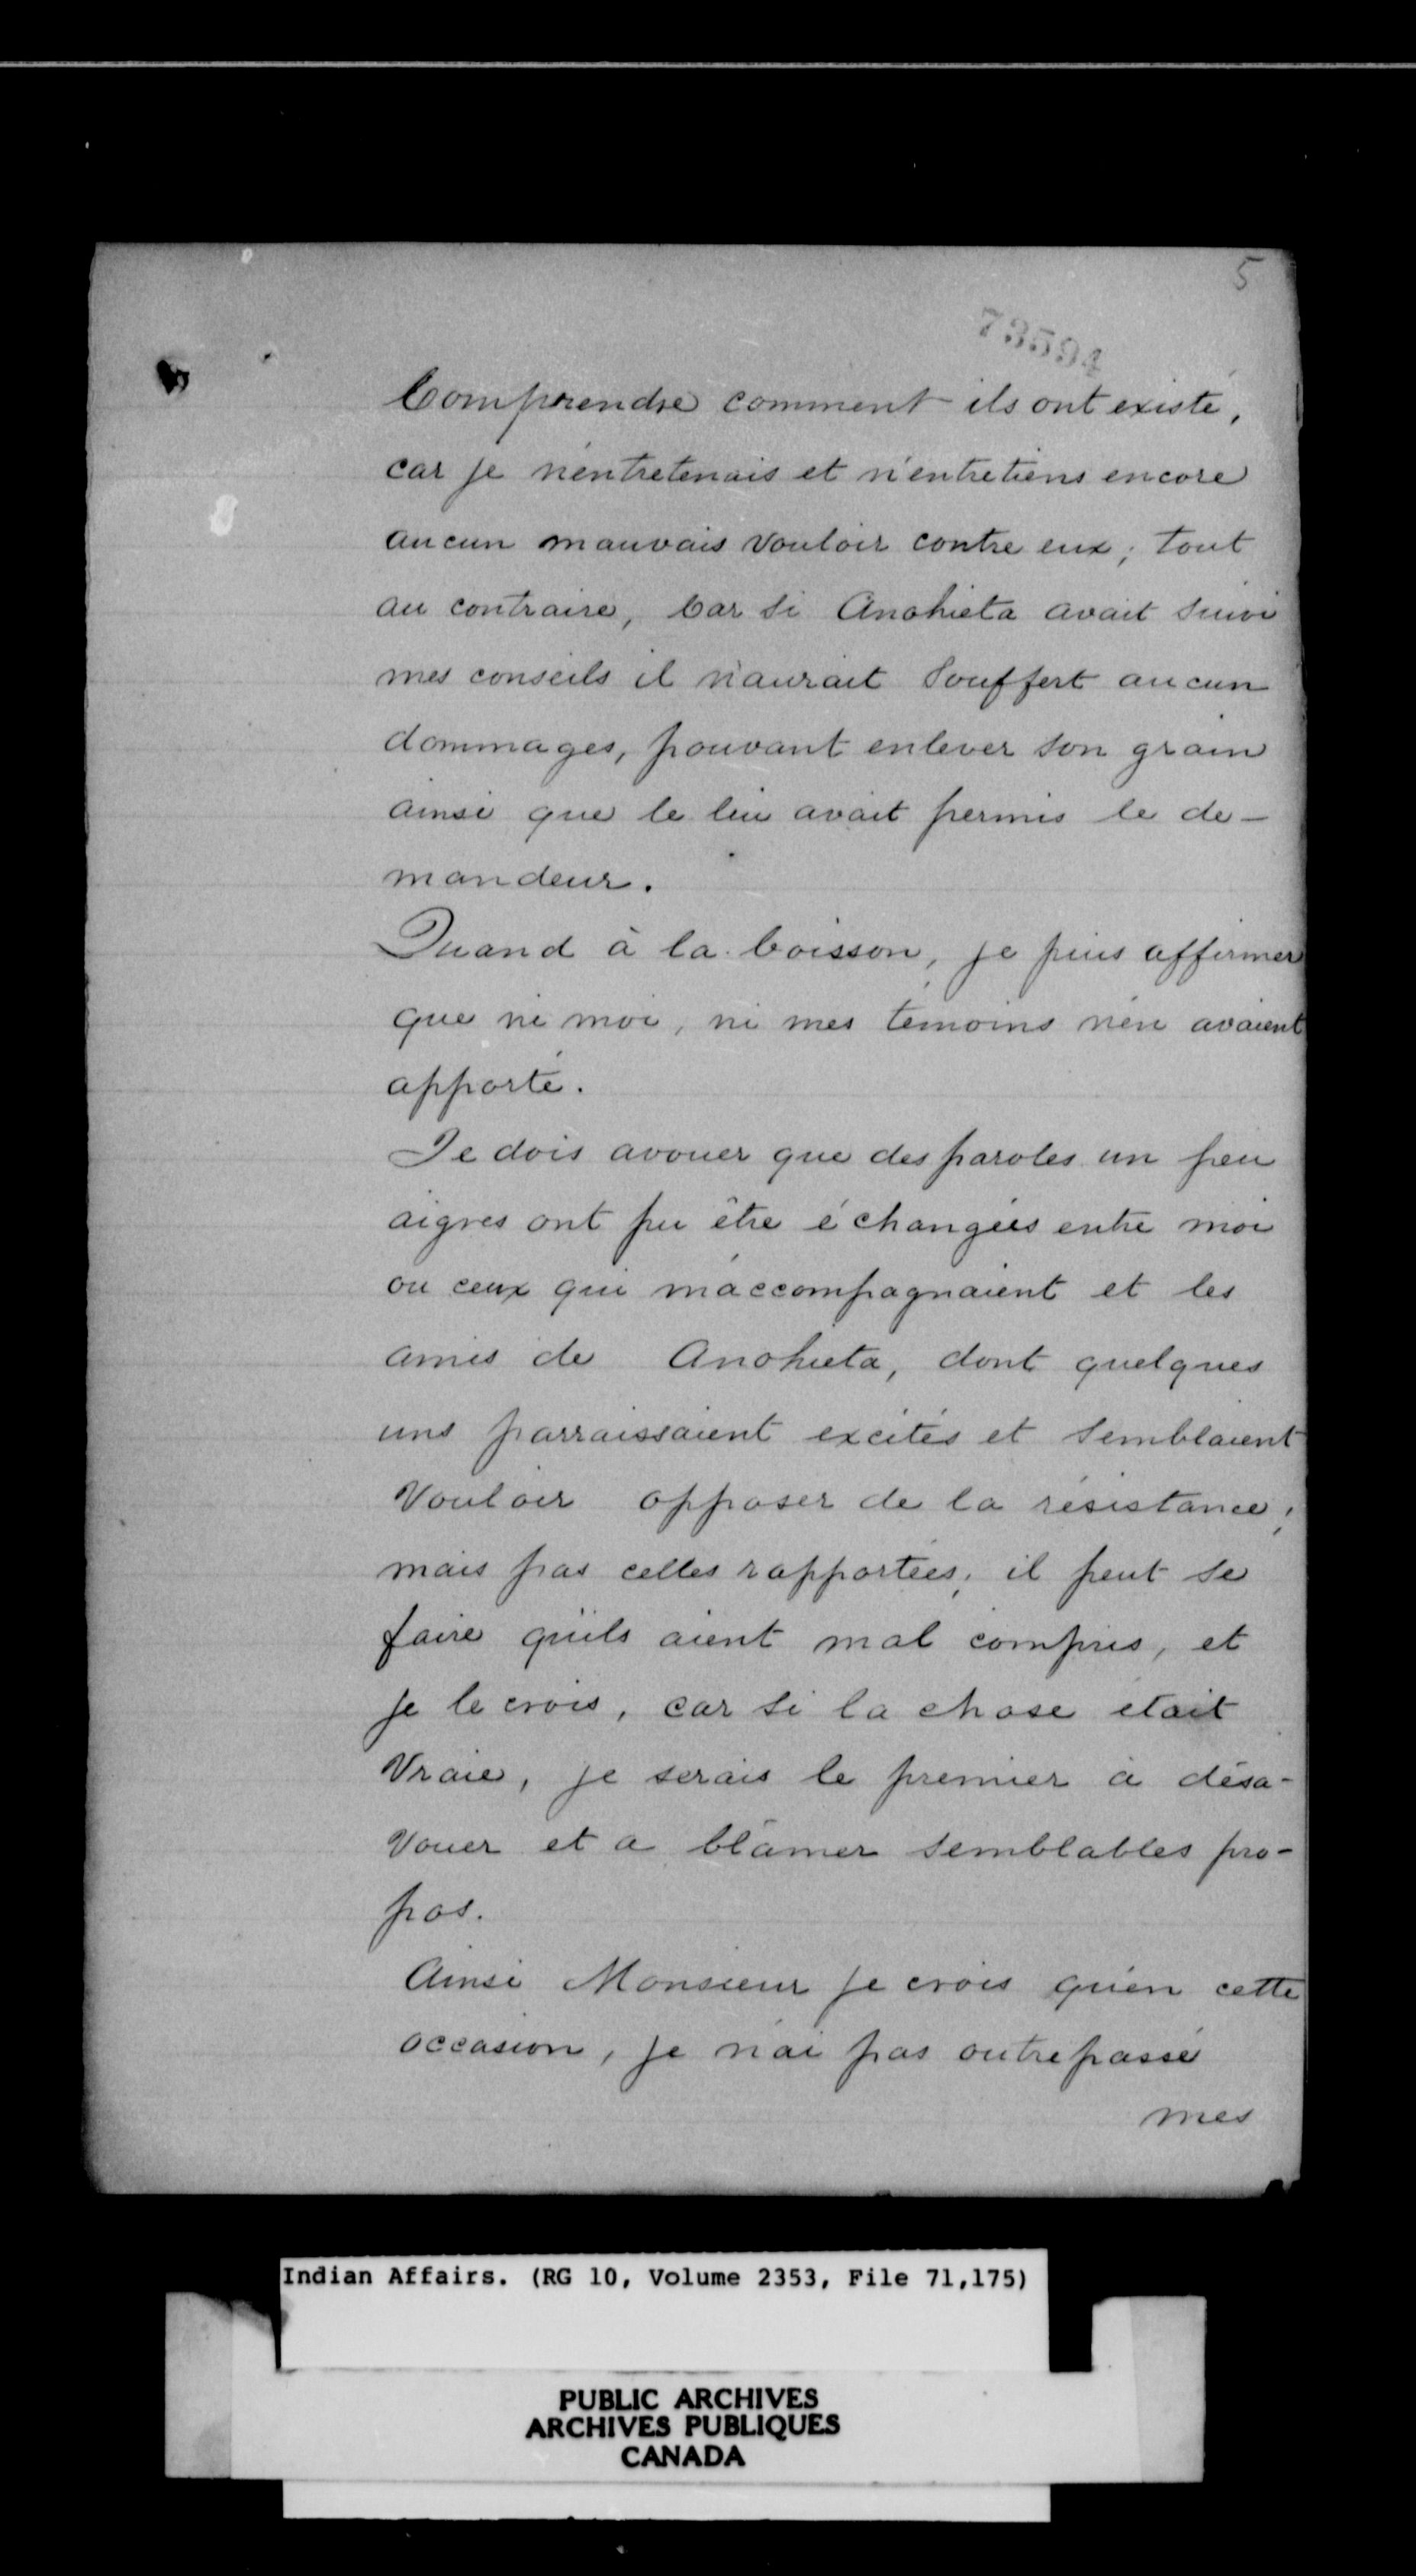 5
73594
Comprendre comment ils ont existé,
car je n'entretenais et n'entretiens encore
aucun mauvais vouloir contre eux; tout
au contraire, Car si Anohieta avait suivi
mes conseils il n'aurait souffert aucun
dommages, pouvant enlever son grain
ainsi que le lui avait permis le de-
mandeur.
Quand à la boisson, je puis affirmer
que ni moi, ni mes témoins n'en avaient
apporté.
Je dois avouer que des paroles un peu
aigres ont pu être échangées entre moi
ou ceux qui m'accompagnaient et les
amis de Anohieta, dont quelques
uns parraissaient excités et semblaient
vouloir opposer de la résistance;
mais pas celles rapportées; il peut se
faire qu'ils aient mal compris, et
je le crois, car si la chose était
vraie, je serais le premier à désa-
vouer et a blâmer semblables pro-
pos.
Ainsi Monsieur je crois qu'en cette
occasion, je n'ai pas outrepassé
mes
Indian Affairs. (RG 10, Volume 2353, File 71,175)
PUBLIC ARCHIVES
ARCHIVES PUBLIQUES
CANADA